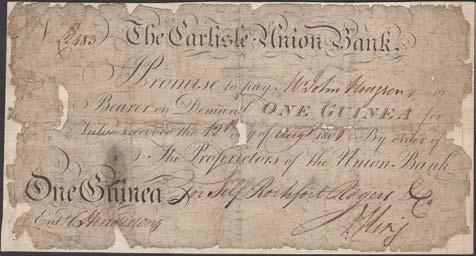 N 483
The Carlisle Union Bank.
Promise to pay Mr John Hodgson or
Bearer on Demand ONE GUINEA for
Value received the 12 day of Augt By order of
The Proprietors of the Union Bank
One Guinea For Self Rochfort Rogers & Co
Entd